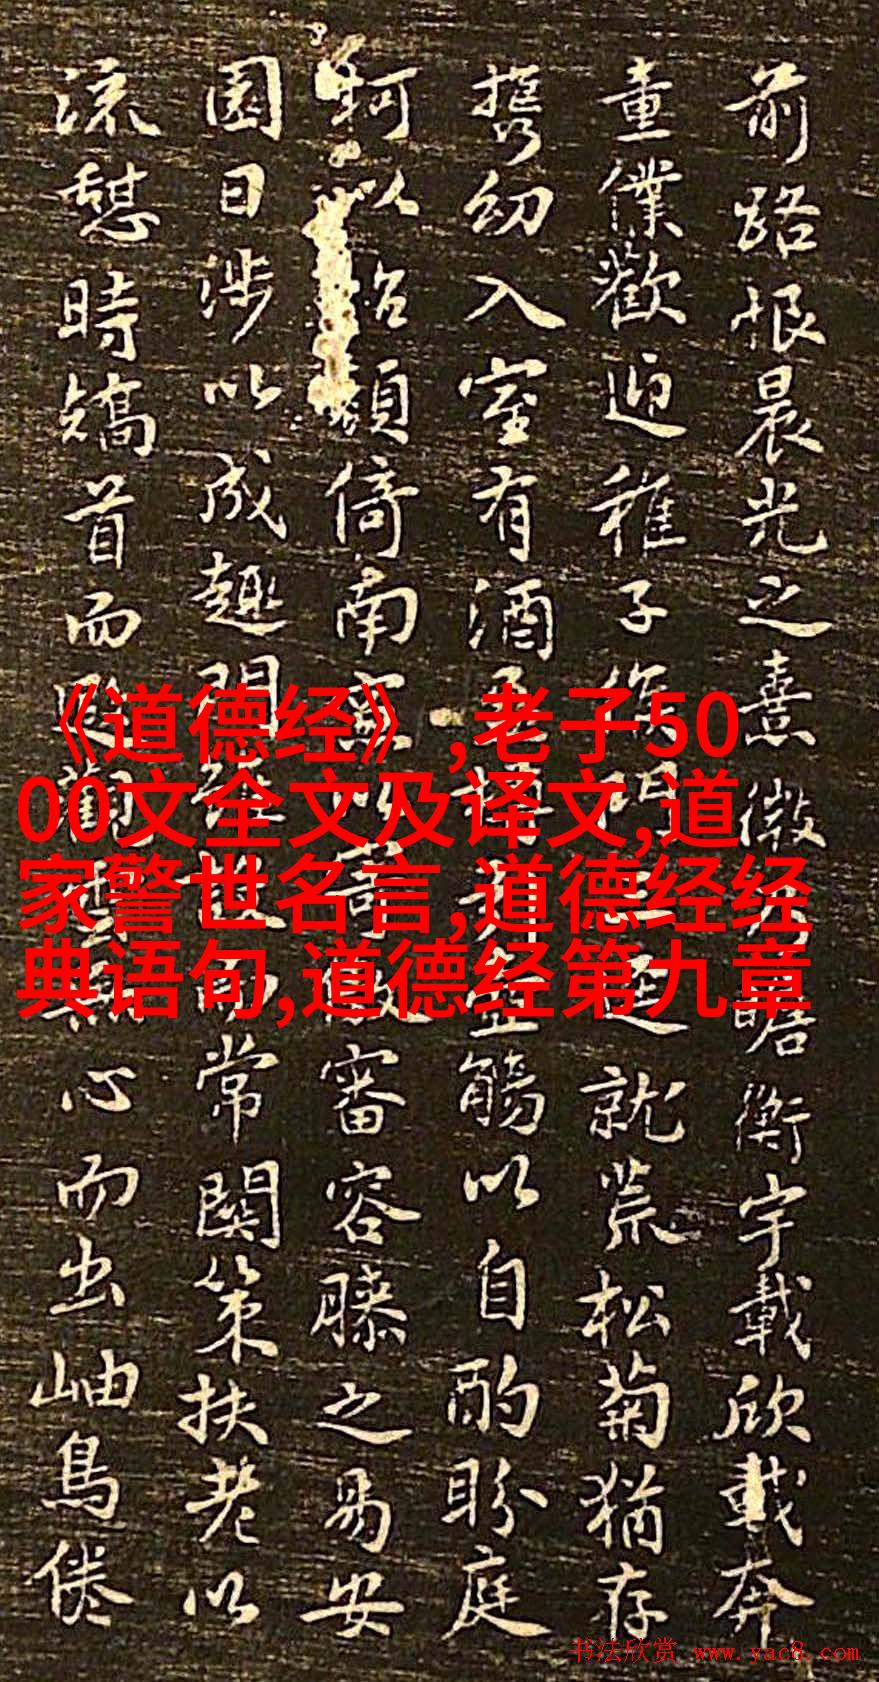 前路恨晨光之熹微瞻衡宇載欣載奔
童僕歡迎稚子候門逕就荒松菊猶存
携幼入室有酒樽壺觴以自酌盼庭
柯以怡顏倚南窻以寄傲審容膝之易安
園日涉以成趣門雖設而常關策扶老以
流憩時矯首而遐觀雲無心而出岫鳥倦
《道德经》,老子50
00文全文及译文,道
家警世名言,道德经经
典语句,道德经第九章
书法欣赏 www.yac8.com